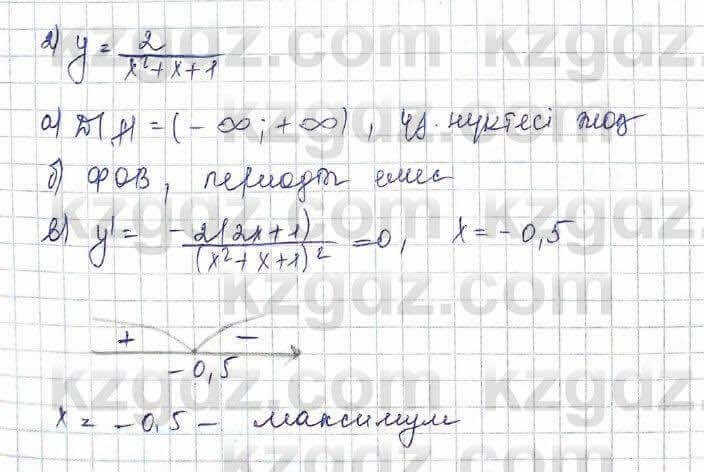 2) y = 2/(x²+x+1)
а) D(y) = (-∞; +∞), үз. нүктесі жоқ
б) ФОВ, периодты емес
в) y' = - 2(2x+1)/(x²+x+1)² = 0, x = -0,5
+ -
-0,5
x = -0,5 - максимум
kzgdz.com